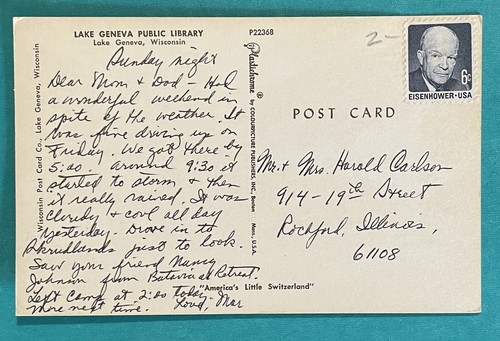 LAKE GENEVA PUBLIC LIBRARY
Lake Geneva, Wisconsin
P22368
Wisconsin Post Card Co., Lake Geneva, Wisconsin
Sunday night
Dear Mom & Dad - Had
a wonderful weekend in
spite of the weather. It
was fine driving up on
Friday. We got there by
5:00. Around 9:30 it
started to storm & then
it really rained. It was
cloudy & cool all day
yesterday. Drove in to
just to look.
Saw your friend Nancy
Johnson from Batavia at Retreat.
Left Camp at 2:00 today.
More next time. Love, Mar
"America's Little Switzerland"
Plastichrome ® by COLOURPICTURE PUBLISHERS, INC., Boston, Mass., U.S.A.
2-
6¢
EISENHOWER·USA
POST CARD
Mr. & Mrs. Harold Carlson
914-19th Street
Rockford, Illinois,
61108